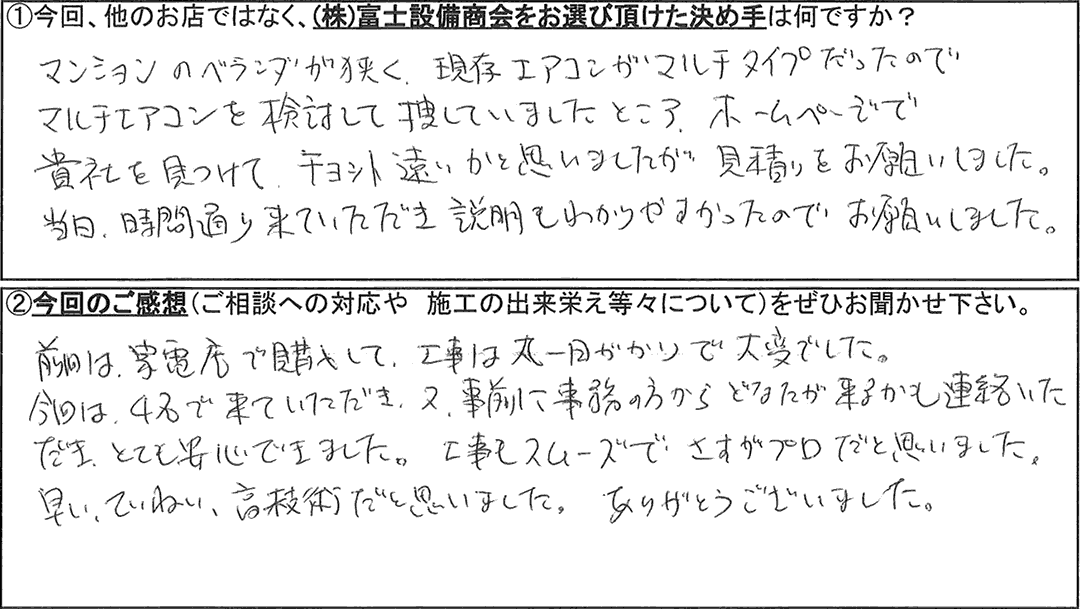 ①今回、他のお店ではなく、(株)富士設備商会をお選び頂けた決め手は何ですか？
マンションのベランダが狭く、現存エアコンがマルチタイプだったので
マルチエアコンを検討して捜していましたところ、ホームページで
貴社を見つけて、チョット遠いかと思いましたが見積りをお願いしました。
当日、時間通り来ていただき説明もわかりやすかったのでお願いしました。
②今回のご感想(ご相談への対応や 施工の出来栄え等々について)をぜひお聞かせ下さい。
前回は、家電店で購入して、工事は丸一日がかりで大変でした。
今回は、4名で来ていただき、又、事前に事務の方からどなたが来るかも連絡いた
だき、とても安心できました。工事もスムーズでさすがプロだと思いました。
早い、ていねい、高技術だと思いました。ありがとうございました。